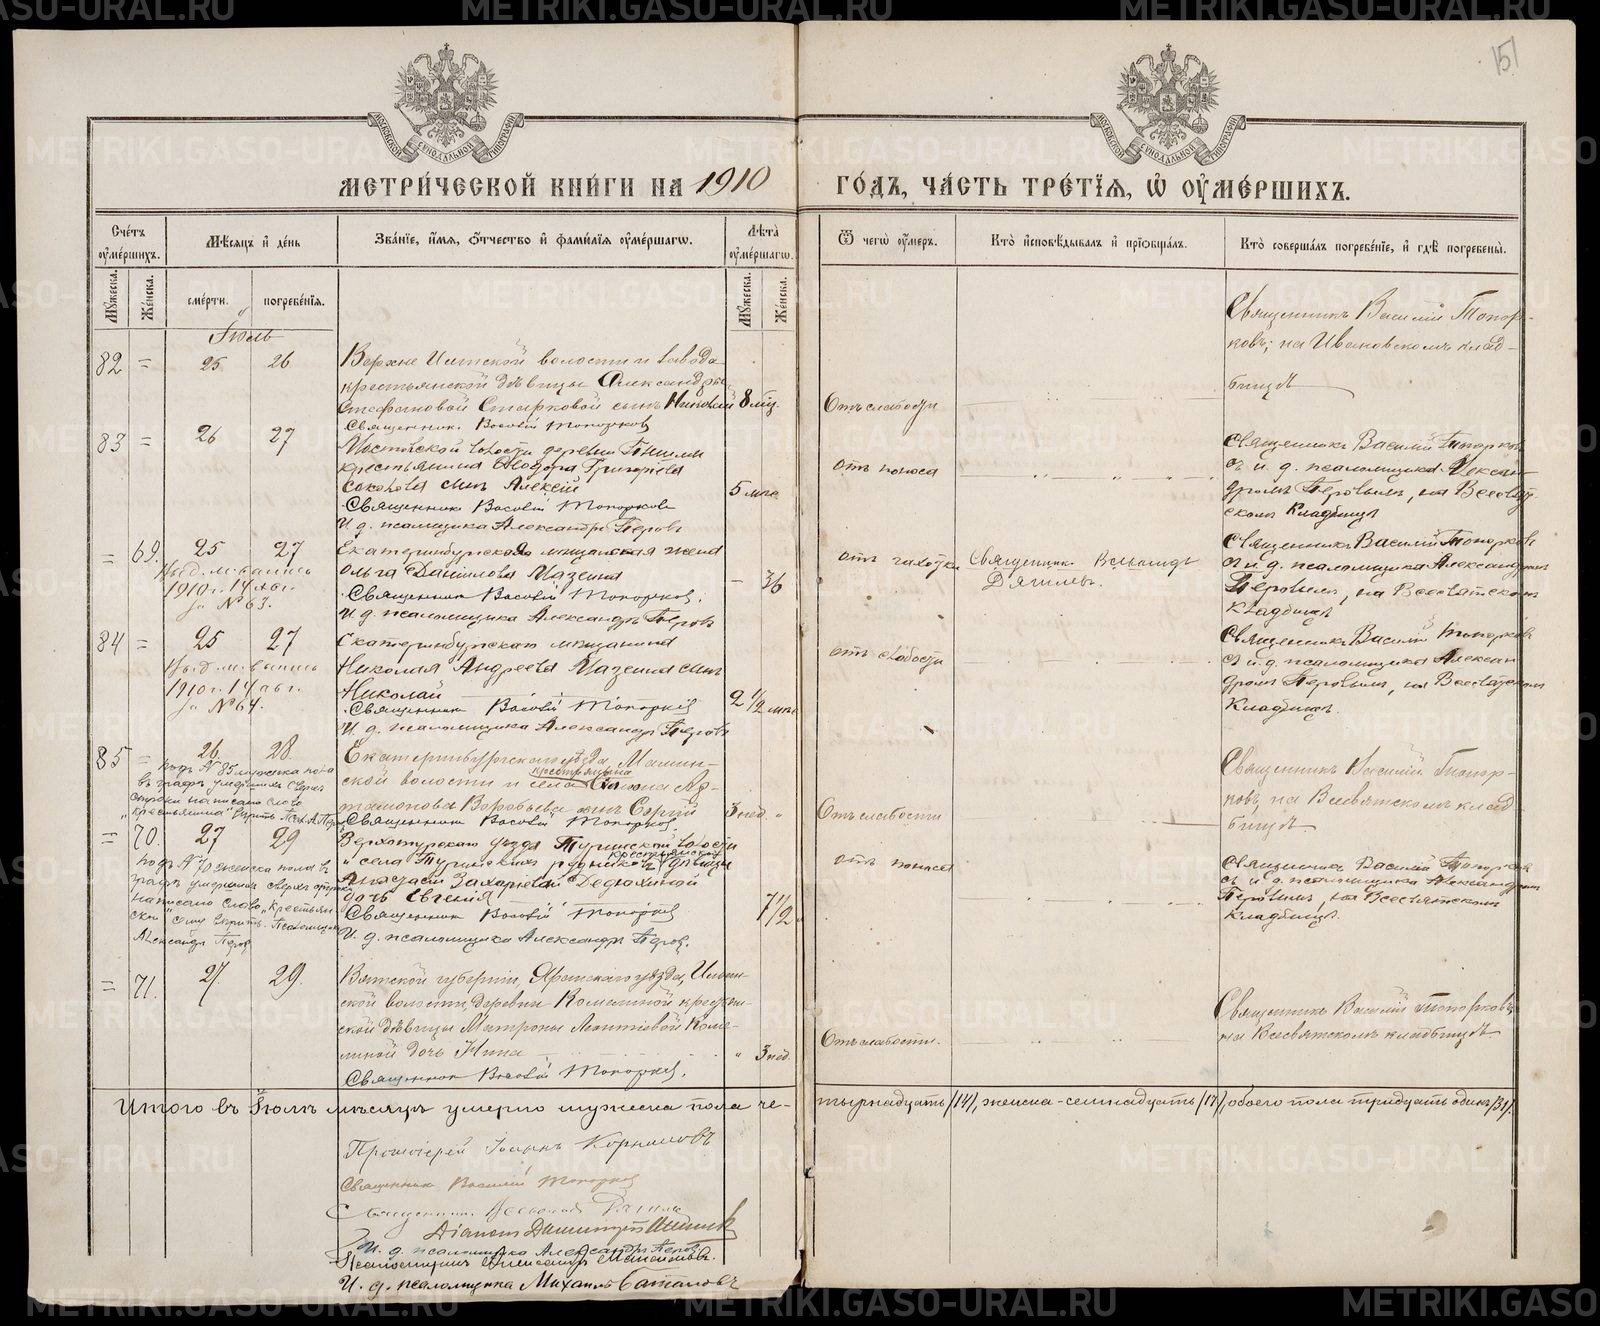 151
МОСКОВСКОЙ СѴНОДАЛЬНОЙ ТИПОГРАФІИ
МОСКОВСКОЙ СѴНОДАЛЬНОЙ ТИПОГРАФІИ
МЕТРИ́ЧЕСКОЙ КНИ́ГИ НА 1910 ГО́ДЪ, ЧА́СТЬ ТРЕ́ТЇЯ, Ѡ҆ ОУ҆МЕ́РШИХЪ.
Счётъ оу҆ме́ршихъ.
Мѣ́сѧцъ и҆ де́нь
Зва́нїе, и҆́мѧ, ѻ҆́тчество и҆ фами́лїѧ оу҆ме́ршагѡ.
Лѣ́та оу҆ме́ршагѡ.
Ѿ чегѡ̀ оу҆́меръ.
Кто̀ и҆сповѣ́дывалъ и҆ прїѡбща́лъ.
Кто̀ соверша́лъ погребе́нїе, и҆ гдѣ̀ погребены̀.
Мꙋ́жеска.
Же́нска.
сме́рти.
погребе́нїѧ.
Мꙋ́жеска.
Же́нска.
Іюль
82 = 25 26
Верхне Исетской волости и завода
крестьянской дѣвицы Александры
Стефановой Старковой сынъ Николай 8 мѣс.
Священник Василій Топорков
Отъ слабости
Священникъ Василій Топор-
ковъ; на Ивановскомъ клад-
бищѣ
83 = 26 27
волости деревни
крестьянина Ѳеодора Григоріева
Соколова сынъ Алексій 5 мѣс
Священник Василій Топорков
И. д. псаломщика Александръ Перовъ
отъ поноса
Священникъ Василій Топорков
съ и. д. псаломщика Алексан-
дромъ Перовымъ, на Всесвят-
ском кладбищѣ
= 69. 25 27
Выд. м. выпись
1910 г. 14 авг.
за № 63.
Екатеринбургская мѣщанская жена
Ольга Даніилова Мазеина – 36
Священник Василій Топорков.
И. д. псаломщика Александръ Перовъ
отъ чахотки
Священник Всеволодъ
Дягилевъ.
Священникъ Василій Топорков
съ и. д. псаломщика Александром
Перовымъ, на Всесвятском
кладбищѣ
84 = 25 27
Выд. м. выпись
1910 г. 14 авг.
за № 64.
Екатеринбургскаго мѣщанина
Николая Андреева Мазеина сынъ
Николай 2 1/2 мѣс
Священник Василій Топорков
И. д. псаломщика Александръ Перовъ
отъ слабости
Священникъ Василій Топорков
съ и. д. псаломщика Алексан
дромъ Перовымъ, на Всесвятском
кладбищѣ.
85 = 26 28
Подъ № 85 мужска пола
въ графѣ умершихъ сверхъ
строки написано слово
„крестьянина" вѣрить Пс. А. Перов
Екатеринбургскаго уѣзда Мамин-
ской волости и села крестьянина Ар-
тамонова Воробьева сынъ Сергій 3 нед. „
Священник Василій Топорков.
Отъ слабости
Священникъ Василій Топор-
ковъ, на Всесвятскомъ клад
бищѣ.
= 70. 27 29
Подъ № 70 женска пола въ
графѣ умершихъ сверхъ строки
написано слово „крестьян-
ской" вѣрить. Псаломщик
Александръ Перов
Верхотурскаго уѣзда Туринской волости
и села Туринскихъ рудников крестьянской дѣвицы
Анастасіи Захаріевой Дедюхиной
дочь Евгенія 7 1/2
Священник Василій Топорков
И. д. псаломщика Александръ Перов.
отъ поноса
Священник Василій Топорков
съ и. д. псаломщика Александром
Перовымъ, на Всесвятском
кладбищѣ.
= 71. 27. 29.
Вятской губерніи, Яранскаго уѣзда,
ской волости, деревни крестьян-
ской дѣвицы Матроны
дочь Нина „ 3 нед.
Священник Василій Топорков.
Отъ слабости.
Священникъ Василій Топорковъ
на Всесвятскомъ кладбищѣ.
Итого въ Іюлѣ мѣсяцѣ умерло мужеска пола че-
тырнадцать /14/, женска - семнадцать /17/, обоего пола тридцать одинъ /31/.
Протоіерей Іоаннъ Корниловъ
Священник Василій Топорков
Священникъ Всеволод Дягилев
Діаконъ Димитрій
И. д. псаломщика Александръ Перов
Псаломщикъ
И. д. псаломщика Михаилъ Баталовъ
METRIKI.GASO-URAL.RU